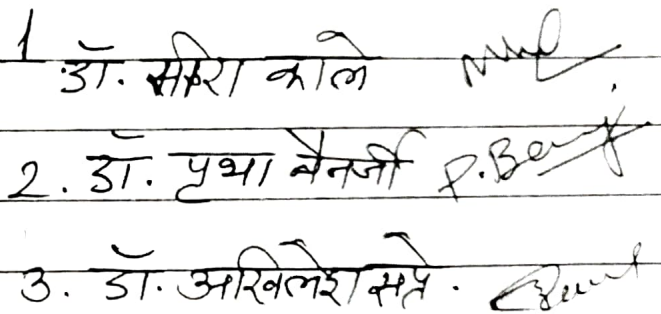 1 डॉ. मीरा काले
2. डॉ. पृथा बैनर्जी P. Banerj
3. डॉ. अखिलेश सप्रे.